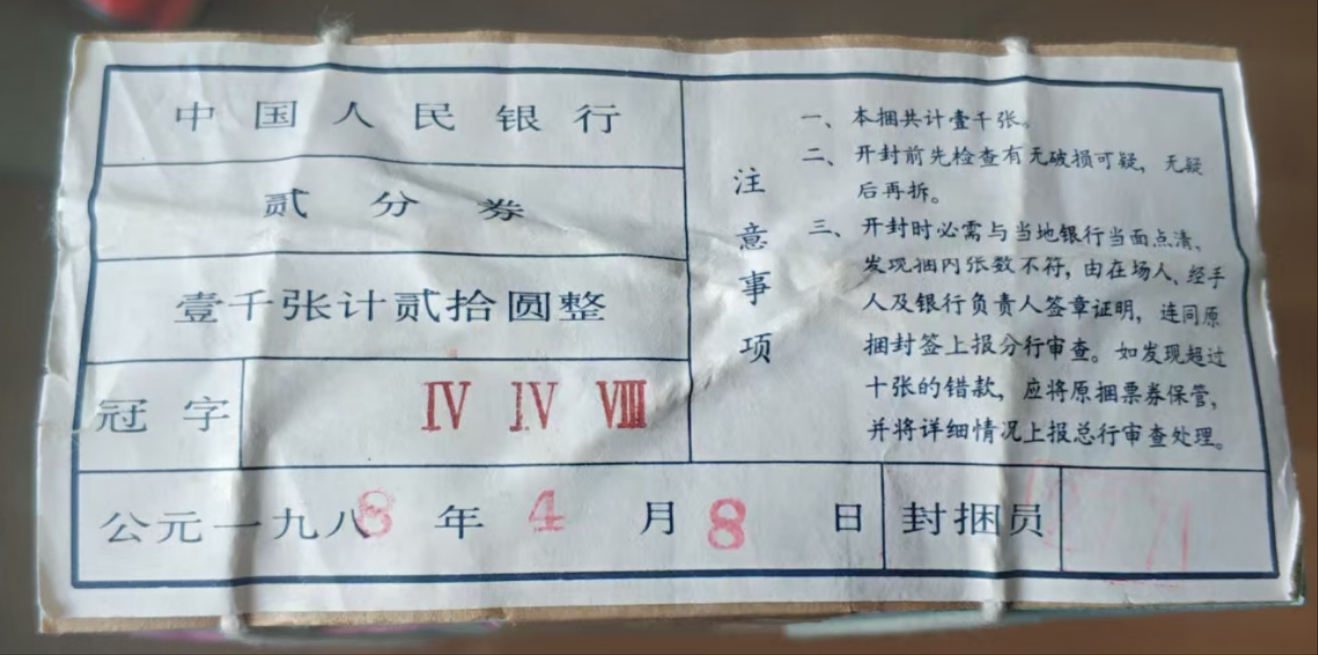 中国人民银行
贰分券
壹千张计贰拾圆整
冠字 IV IV VIII
公元一九八8年4月8日 封捆员
注意事项
一、本捆共计壹千张。
二、开封前先检查有无破损可疑，无疑
后再拆。
三、开封时必需与当地银行当面点清、
发现捆内张数不符，由在场人、经手
人及银行负责人签章证明，连同原
捆封签上报分行审查。如发现超过
十张的错款，应将原捆票券保管，
并将详细情况上报总行审查处理。